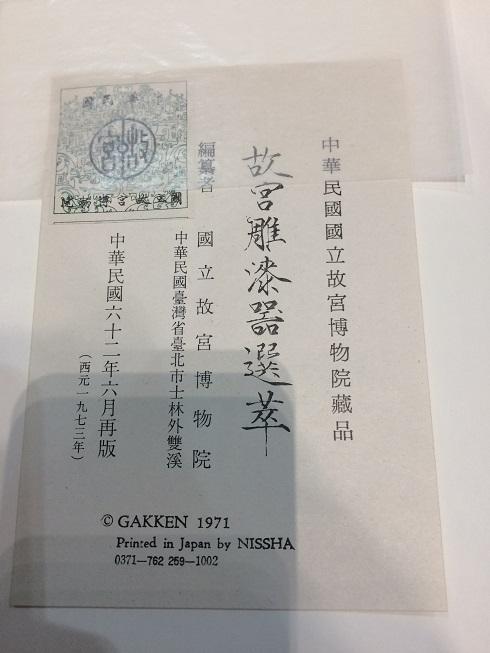 中華民國國立故宮博物院藏品
故宮雕漆器選萃
編纂者 國立故宮博物院
中華民國臺灣省臺北市士林外雙溪
中華民國六十二年六月再版
(西元一九七三年)
© GAKKEN 1971
Printed in Japan by NISSHA
0371—762 259—1002